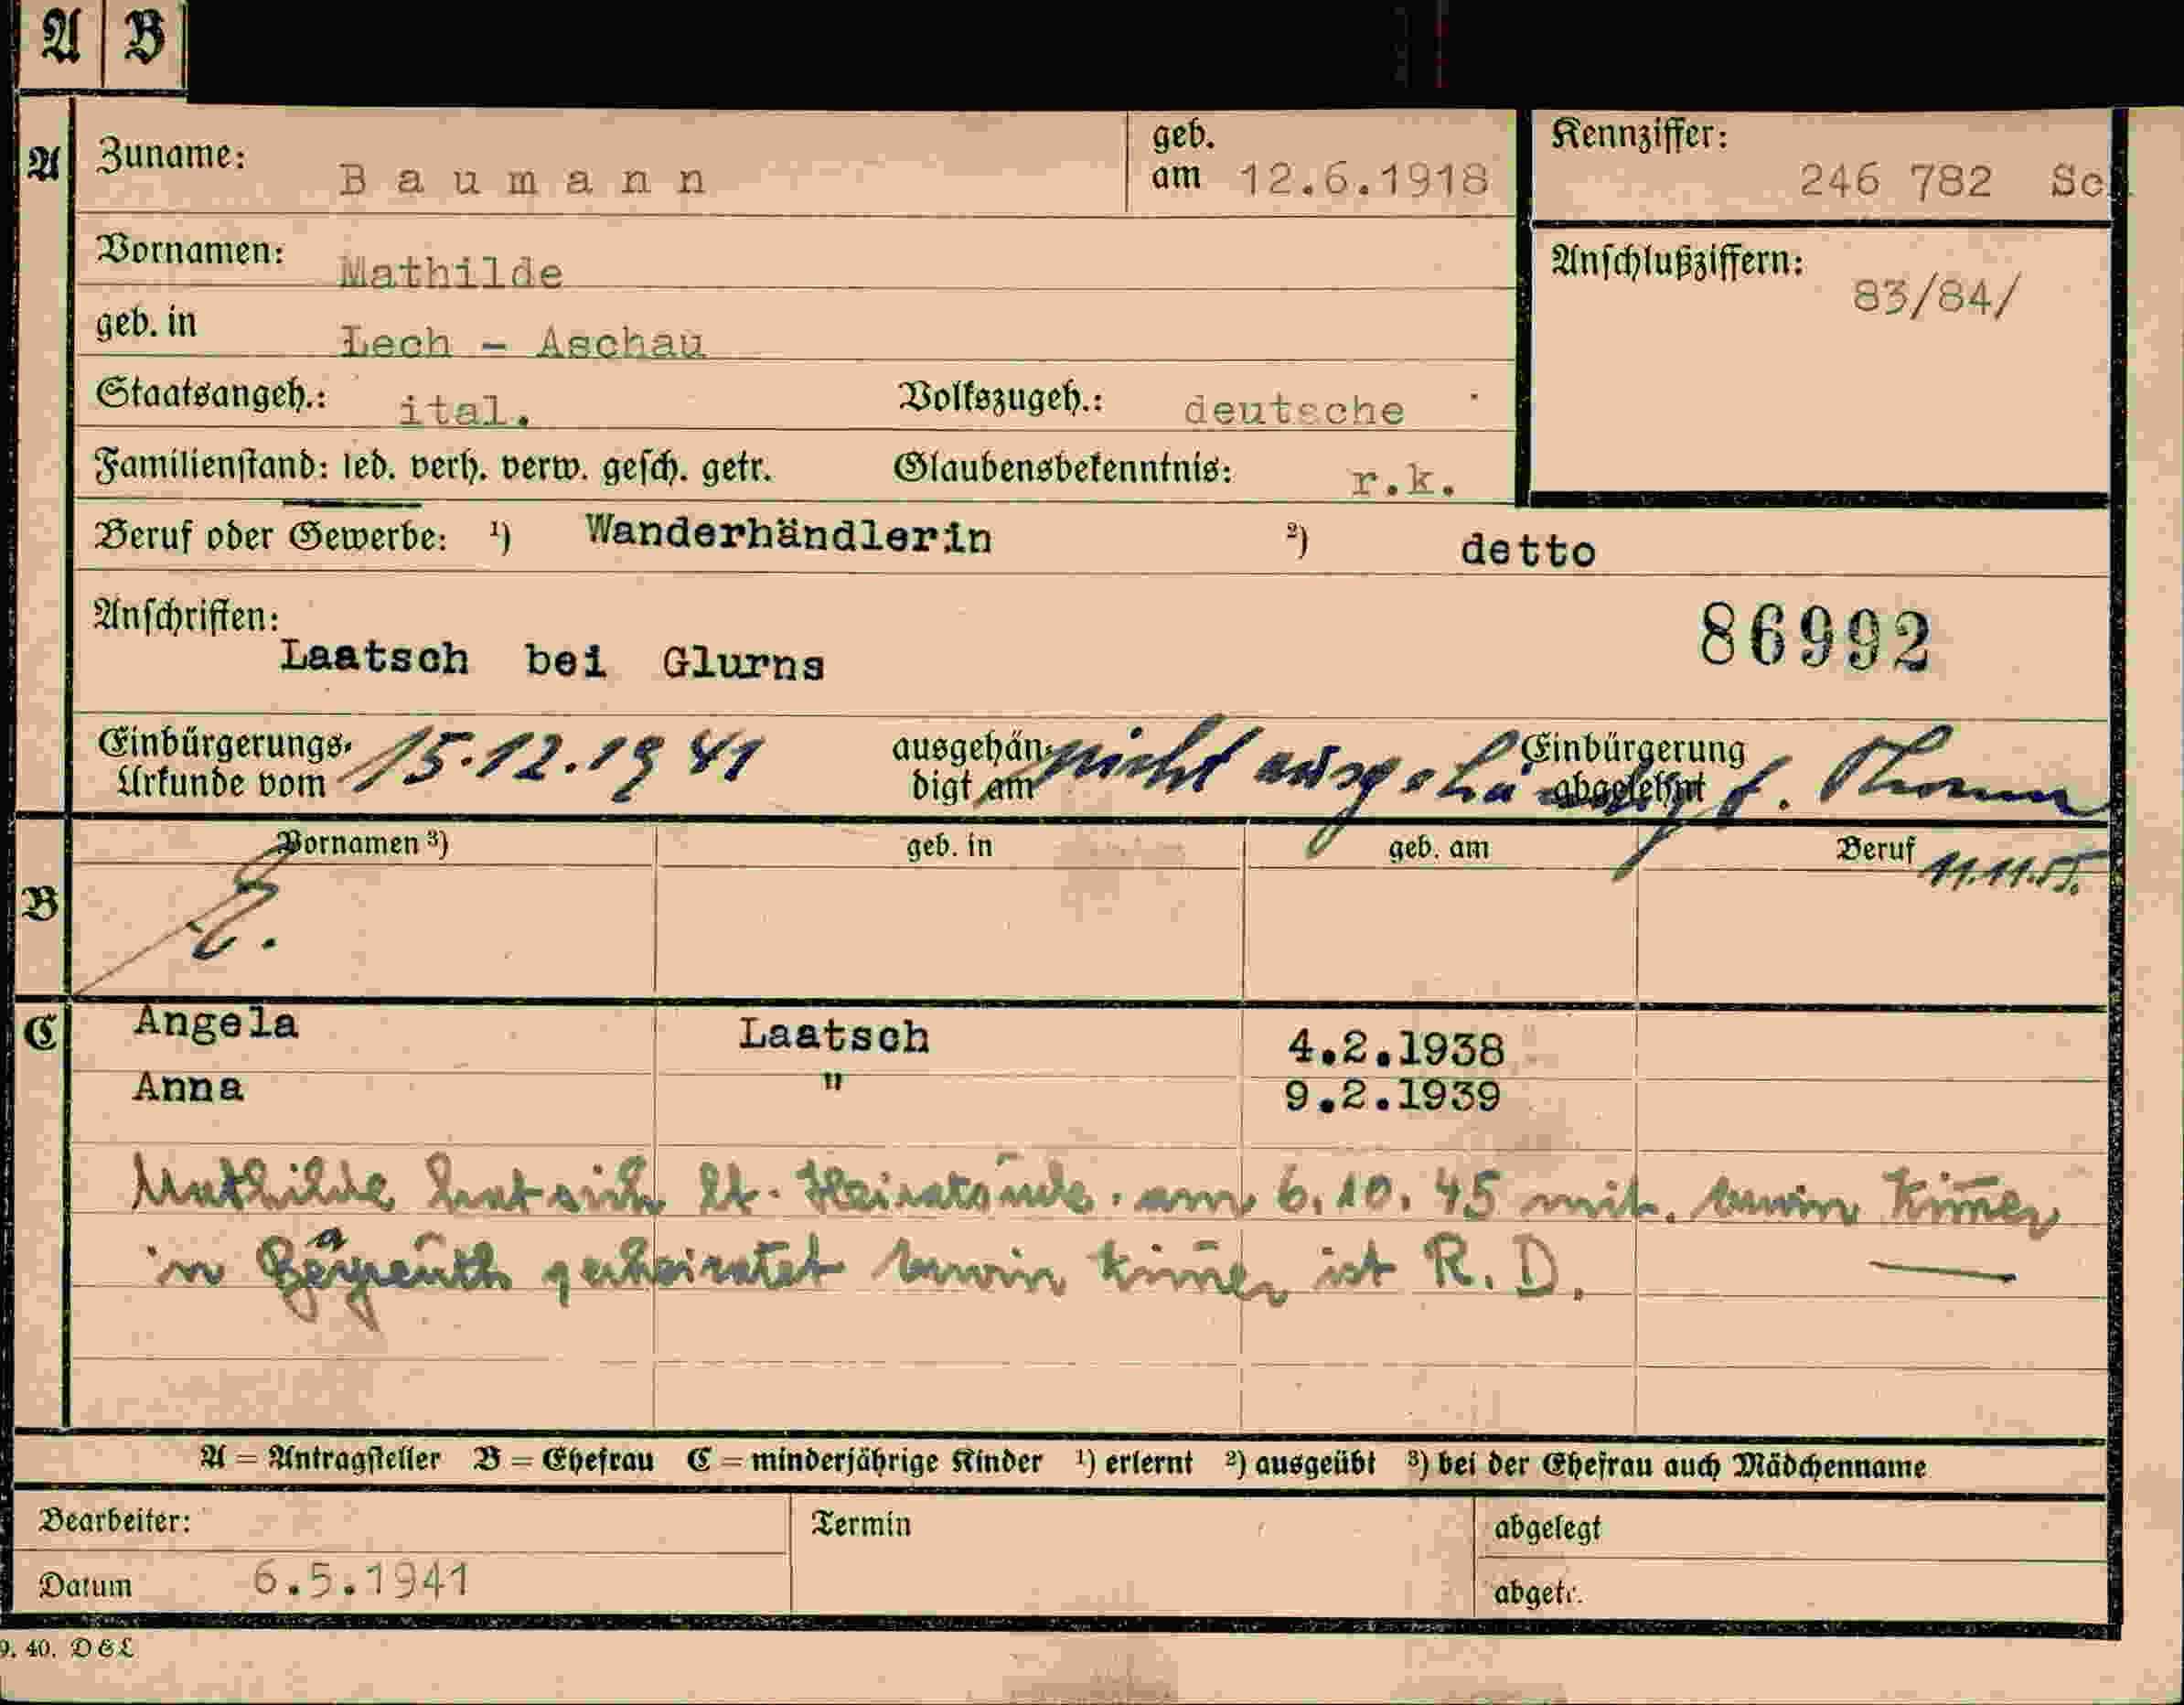 A B
A Zuname: Baumann geb. am 12.6.1918 Kennziffer: 246 782 Sc
Vornamen: Mathilde Anschlußziffern: 83/84/
geb. in Lech - Aschau
Staatsangeh.: ital. Volkszugeh.: deutsche
Familienstand: led. verh. verw. gesch. getr. Glaubensbekenntnis: r.k.
Beruf oder Gewerbe: ¹) Wanderhändlerin ²) detto
Anschriften: 86992
Laatsch bei Glurns
Einbürgerungs- Urkunde vom 15.12.1941 ausgehän- digt am nicht ausgehändigt Einbürgerung abgelehnt
B Vornamen ³) geb. in geb. am Beruf 11.11.55.
C Angela Laatsch 4.2.1938
Anna " 9.2.1939
Mathilde hat sich lt. Heiratsurk. am 6.10.45 mit
in Bayreuth geheiratet ist R. D.
A = Antragsteller B = Ehefrau C = minderjährige Kinder ¹) erlernt ²) ausgeübt ³) bei der Ehefrau auch Mädchenname
Bearbeiter: Termin abgelegt
Datum 6.5.1941 abgetr.
9. 40. D&L